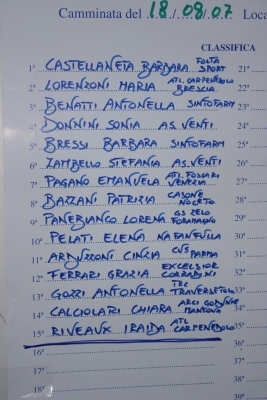 Camminata del 18/09/07 Loca
CLASSIFICA
1ª CASTELLANETA BARBARA FOLTA SPORT 21ª
2ª LORENZONI MARIA ATL. CARPENEDOLO BRESCIA 22ª
3ª BENATTI ANTONELLA SINTOFARM 23ª
4ª DONNINI SONIA AS. VENTI 24ª
5ª BRESSI BARBARA SINTOFARM 25ª
6ª ZAMBELLO STEFANIA AS. VENTI 26ª
7ª PAGANO EMANUELA ATL. FOSCARI VENEZIA 27ª
8ª BAZZANI PATRIZIA CASONE NOCETO 28ª
9ª PANEBIANCO LORENA GS 29ª
10ª PELATI ELENA NAFANFULLA 30ª
11ª CINZIA CUS PARMA 31ª
12ª FERRARI GRAZIA EXCELSIOR 32ª
13ª GOZZI ANTONELLA TRC TRAVERSETOLO 33ª
14ª CALCIOLARI CHIARA ARCI GOODWIN MANTOVA 34ª
15ª RIVEAUX IRALDA ATL CARPENEDOLO 35ª
16ª
17ª
18ª